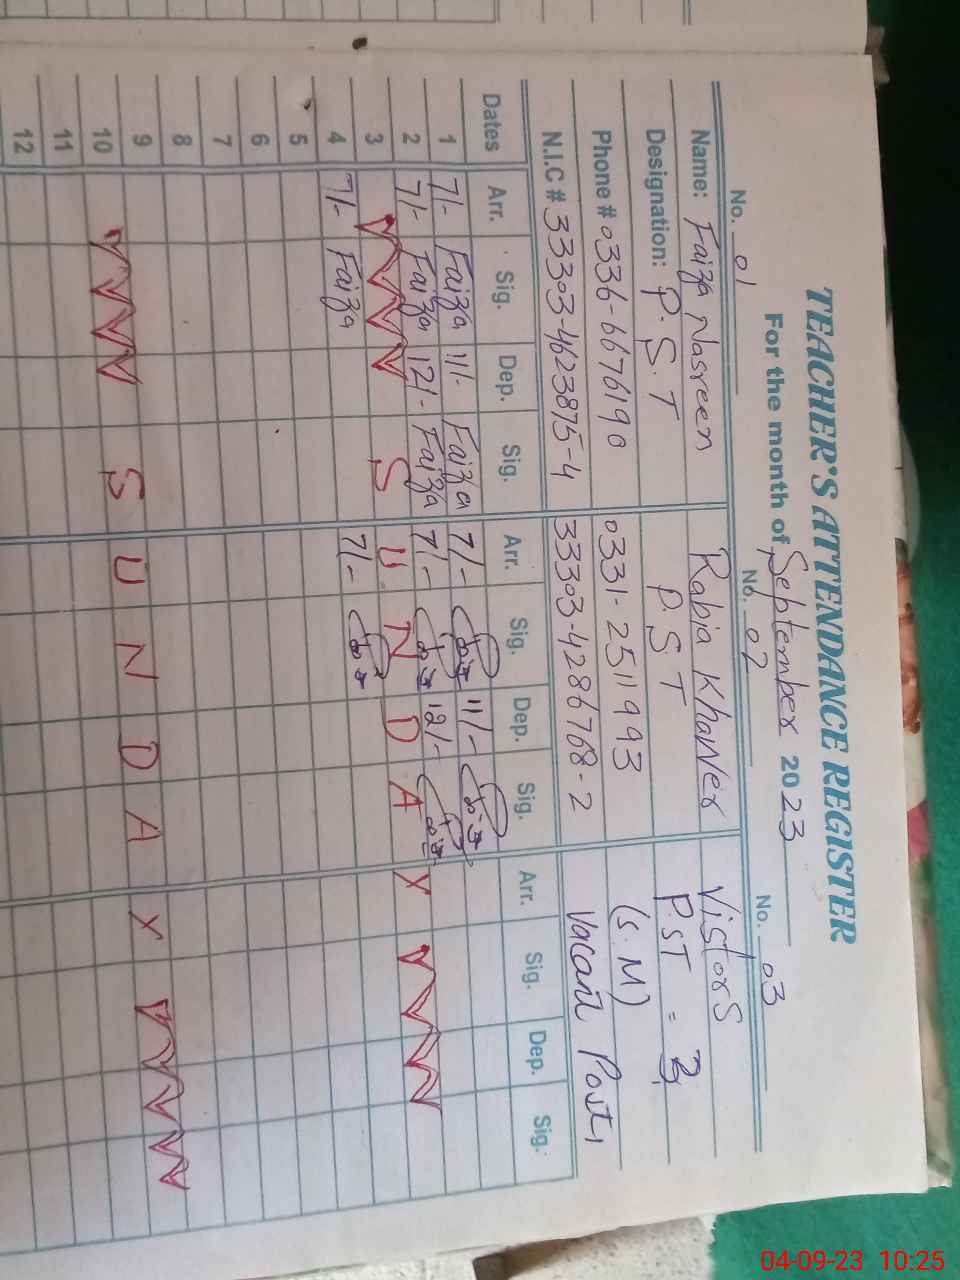 TEACHER'S ATTENDANCE REGISTER
For the month of September 2023
No. 01 No. 02 No. 03
Name: Faiza Nasreen Rabia Khawer Vistors
Designation: P.S.T P.S.T P.ST = 3
Phone # 0336-6676190 0331-2511993 (S.M)
N.I.C # 33303-4623875-4 33303-4286768-2 Vacant Post,
Dates Arr. Sig. Dep. Sig. Arr. Sig. Dep. Sig. Arr. Sig. Dep. Sig.
1 7/- Faiza 11/- Faiza 7/- 11/-
2 7/- Faiza 12/- Faiza 7/- 12/-
3 S U N D A Y
4 7/- Faiza 7/-
5
6
7
8
9
10 S U N D A Y
11
12
04-09-23 10:25